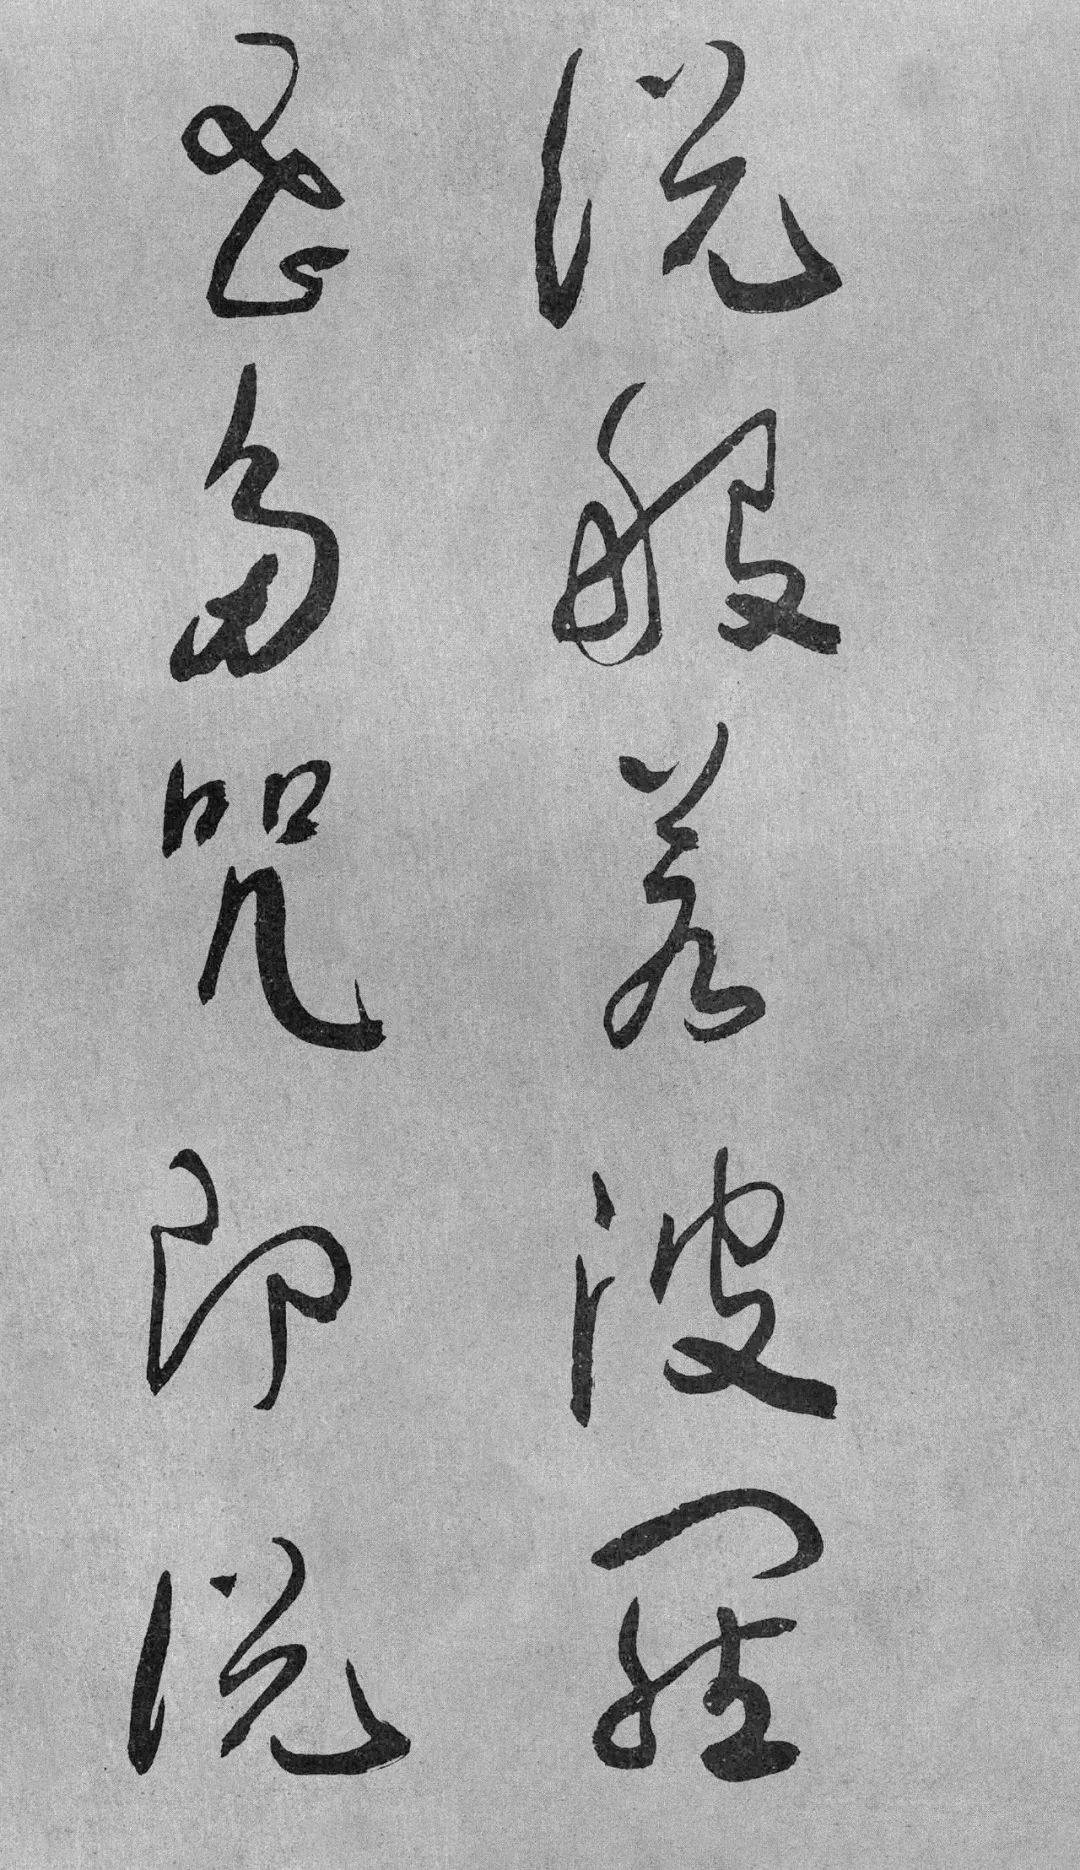 說般若波羅
蜜多咒即說